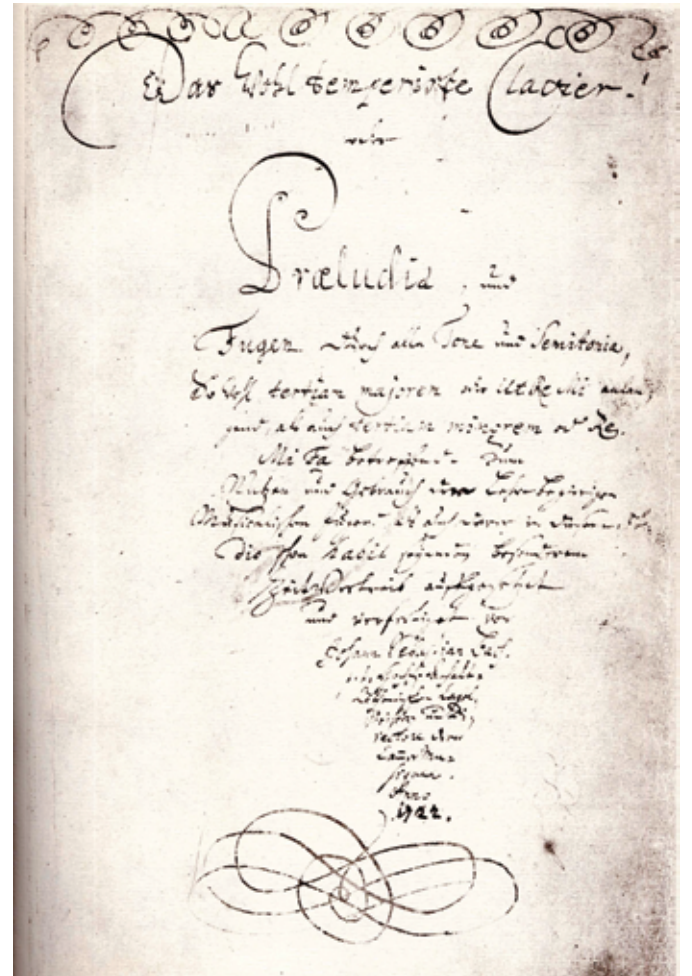 Das Wohltemperirte Clavier.
oder
Præludia, und
Fugen durch alle Tone und Semitonia,
So wohl tertiam majorem oder Ut Re Mi anlan-
gend, als auch tertiam minorem oder Re
Mi Fa betreffend. Zum
Nutzen und Gebrauch der Lehrbegierigen
Musicalischen Jugend, als auch derer in diesem stu-
dio schon habil seyenden besonderem
ZeitVertreib auffgesetzet
und verfertiget von
Johann Sebastian Bach.
p. t. Hochfürstlich Anhalt-
Cöthenischen Capel-
Meistern und Di-
rectore derer
Cammer Mu-
siquen.
Anno
1722.